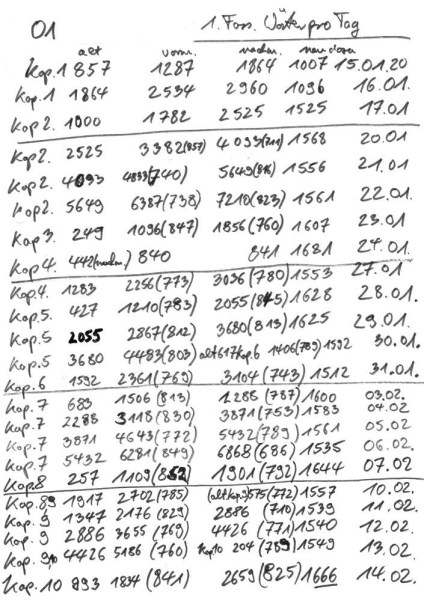 01 1. Fass. Wörter pro Tag
alt vorm. nachm. neu dazu
Kap. 1 857 1287 1864 1007 15.01.20
Kap. 1 1864 2534 2960 1096 16.01.
Kap 2. 1000 1782 2525 1525 17.01
Kap 2. 2525 3382 (857) 4093 (711) 1568 20.01
Kap 2. 4093 4833 (740) 5649 (816) 1556 21.01
Kap 2. 5649 6387 (738) 7210 (823) 1561 22.01
Kap 3. 249 1096 (847) 1856 (760) 1607 23.01
Kap 4. 442 (nachm.) 840 841 1681 24.01
Kap 4. 1283 2256 (773) 3036 (780) 1553 27.01
Kap. 5. 427 1210 (783) 2055 (845) 1628 28.01.
Kap. 5 2055 2867 (812) 3680 (813) 1625 29.01.
Kap. 5 3680 4483 (803) alt 617 Kap. 6 1406 (789) 1592 30.01.
Kap. 6 1592 2361 (769) 3104 (743) 1512 31.01.
Kap. 7 683 1506 (813) 2288 (787) 1600 03.02.
Kap. 7 2288 3118 (830) 3871 (753) 1583 04.02
Kap. 7 3871 4643 (772) 5432 (789) 1561 05.02
Kap. 7 5432 6281 (849) 6868 (686) 1535 06.02.
Kap. 8 257 1109 (852) 1901 (792) 1644 07.02
Kap. 8 9 1917 2702 (785) (alt Kap. 9) 575 (772) 1557 10.02.
Kap. 9 1347 2176 (829) 2886 (710) 1539 11.02.
Kap. 9 2886 3655 (769) 4426 (771) 1540 12.02.
Kap. 9 10 4426 5186 (760) Kap 10 204 (789) 1549 13.02.
Kap. 10 993 1834 (841) 2659 (825) 1666 14.02.